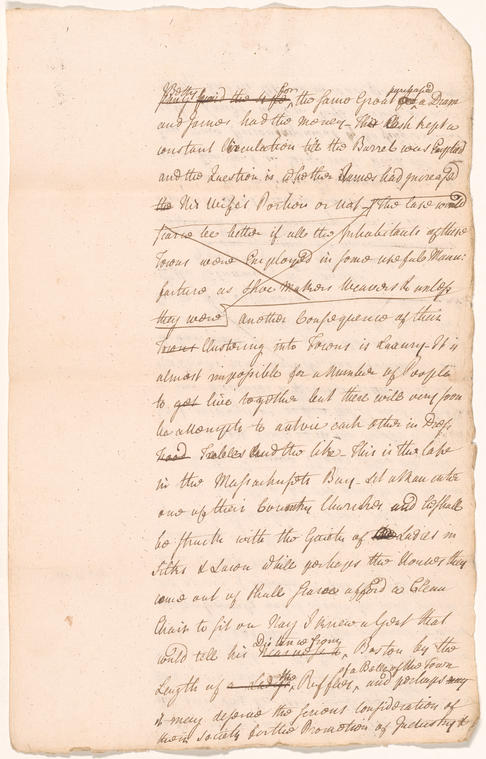 Betty paid the for the same Groat purchased a Dram
and James had the money - The Cash kept a
constant Circulation till the Barrel was Emptied
and the Question is whether James had increased
the His Wife's Portion or not - The case would
scarce be better if all the Inhabitants of these
Towns were Employed in some useful Manu:
facture as Shoe Makers Weavers & unless
they were another Consequence of their
Towns Clustering into Towns is Luxury - It is
almost impossible for a Number of People
to get live together but there will very soon
be attempts to outvie each other in Dress
Food Tables and the like - This is the Case
in the Massachusets Bay - Let a Man enter
one of their Country Churches and he shall
be struck with the Ladies in
Silks & Lawn while perhaps the Houses they
come out of shall scarce afford a Clean
Chair to sit on Nay I knew a Gent that
could tell his Distance from Boston by the
Length of the Ruffles of a Belle of the Town and perhaps
it may deserve the serious consideration of
their Society for the Promotion of Industry &